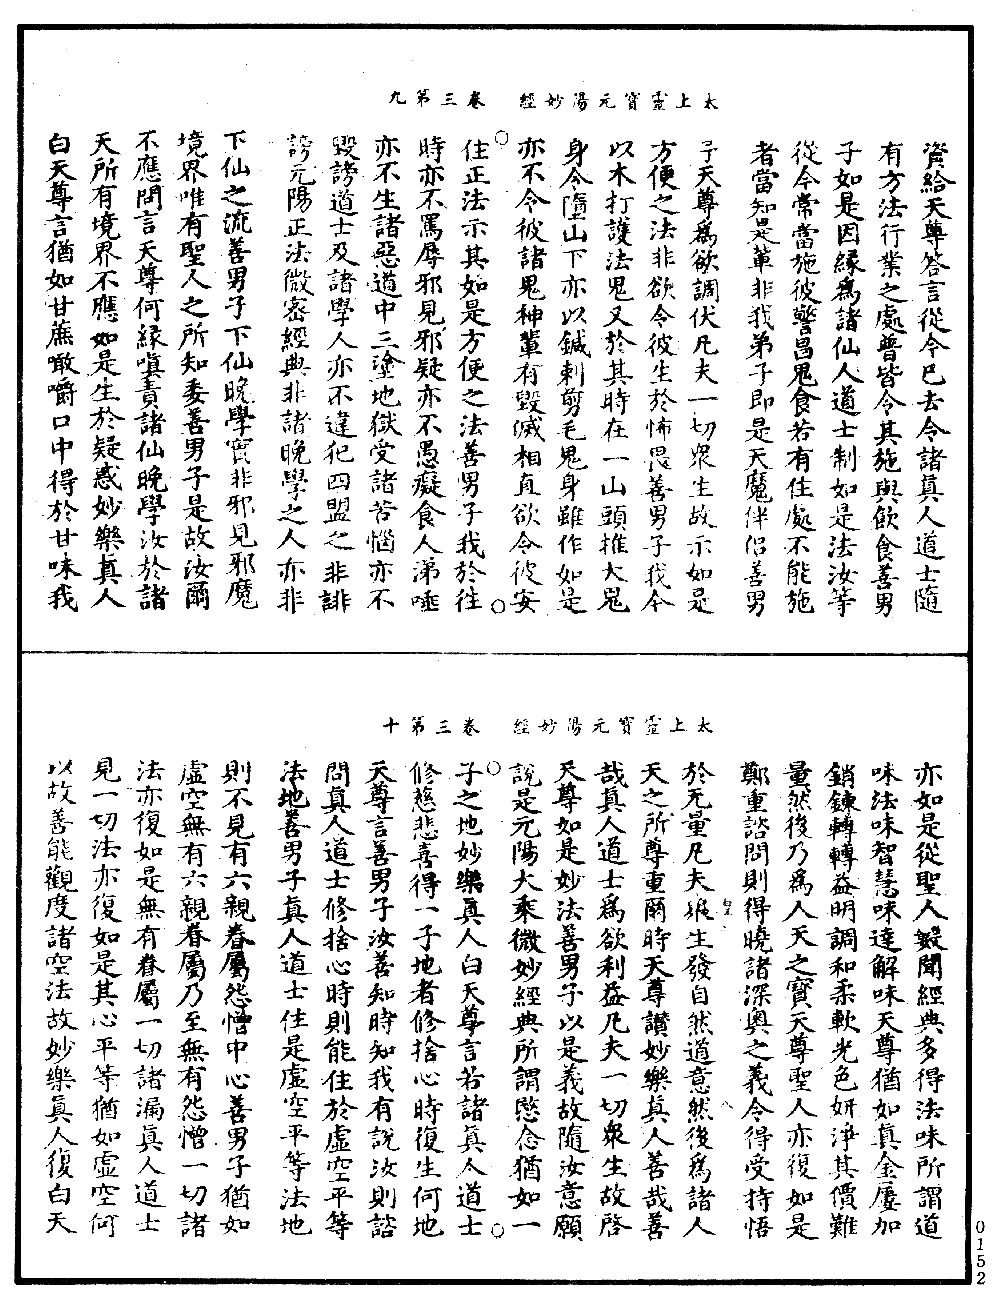 太上靈寶元陽妙經　卷三第九
資給天尊答言從今已去令諸真人道士隨
有方法行業之處普皆令其施與飲食善男
子如是因緣爲諸仙人道士制如是法汝等
從今常當施彼警昌鬼食若有住處不能施
者當知是輩非我弟子即是天魔伴侶善男
子天尊爲欲調伏凡夫一切衆生故示如是
方便之法非欲令彼生於怖畏善男子我今
以木打護法鬼又於其時在一山頭推大鬼
身令墮山下亦以鍼刺剪毛鬼身雖作如是
亦不令彼諸鬼神輩有毀滅相直欲令彼安
住正法示其如是方便之法善男子我於往
時亦不罵辱邪見邪疑亦不愚癡食人涕唾
亦不生諸惡道中三塗地獄受諸苦惱亦不
毀謗道士及諸學人亦不違犯四盟之非誹
謗元陽正法微密經典非諸晚學之人亦非
下仙之流善男子下仙晚學實非邪見邪魔
境界唯有聖人之所知委善男子是故汝爾
不應問言天尊何緣嗔責諸仙晚學汝於諸
天所有境界不應如是生於疑惑妙樂真人
白天尊言猶如甘蔗噉嚼口中得於甘味我
太上靈寶元陽妙經　卷三第十
亦如是從聖人數聞經典多得法味所謂道
味法味智慧味達解味天尊猶如真金屢加
銷鍊轉轉益明調和柔軟光色妍淨其價難
量然後乃爲人天之寶天尊聖人亦復如是
鄭重諮問則得曉諸深奧之義令得受持悟
於无量凡夫衆生發自然道意然後爲諸人
天之所尊重爾時天尊讚妙樂真人善哉善
哉真人道士爲欲利益凡夫一切衆生故啓
天尊如是妙法善男子以是義故隨汝意願
說是元陽大乘微妙經典所謂愍念猶如一
子之地妙樂真人白天尊言若諸真人道士
修慈悲喜得一子地者修捨心時復生何地
天尊言善男子汝善知時知我有說汝則諮
問真人道士修捨心時則能住於虛空平等
法地善男子真人道士住是虛空平等法地
則不見有六親眷屬怨憎中心善男子猶如
虛空無有六親眷屬乃至無有怨憎一切諸
法亦復如是無有眷屬一切諸漏真人道士
見一切法亦復如是其心平等猶如虛空何
以故善能觀度諸空法故妙樂真人復白天
0152